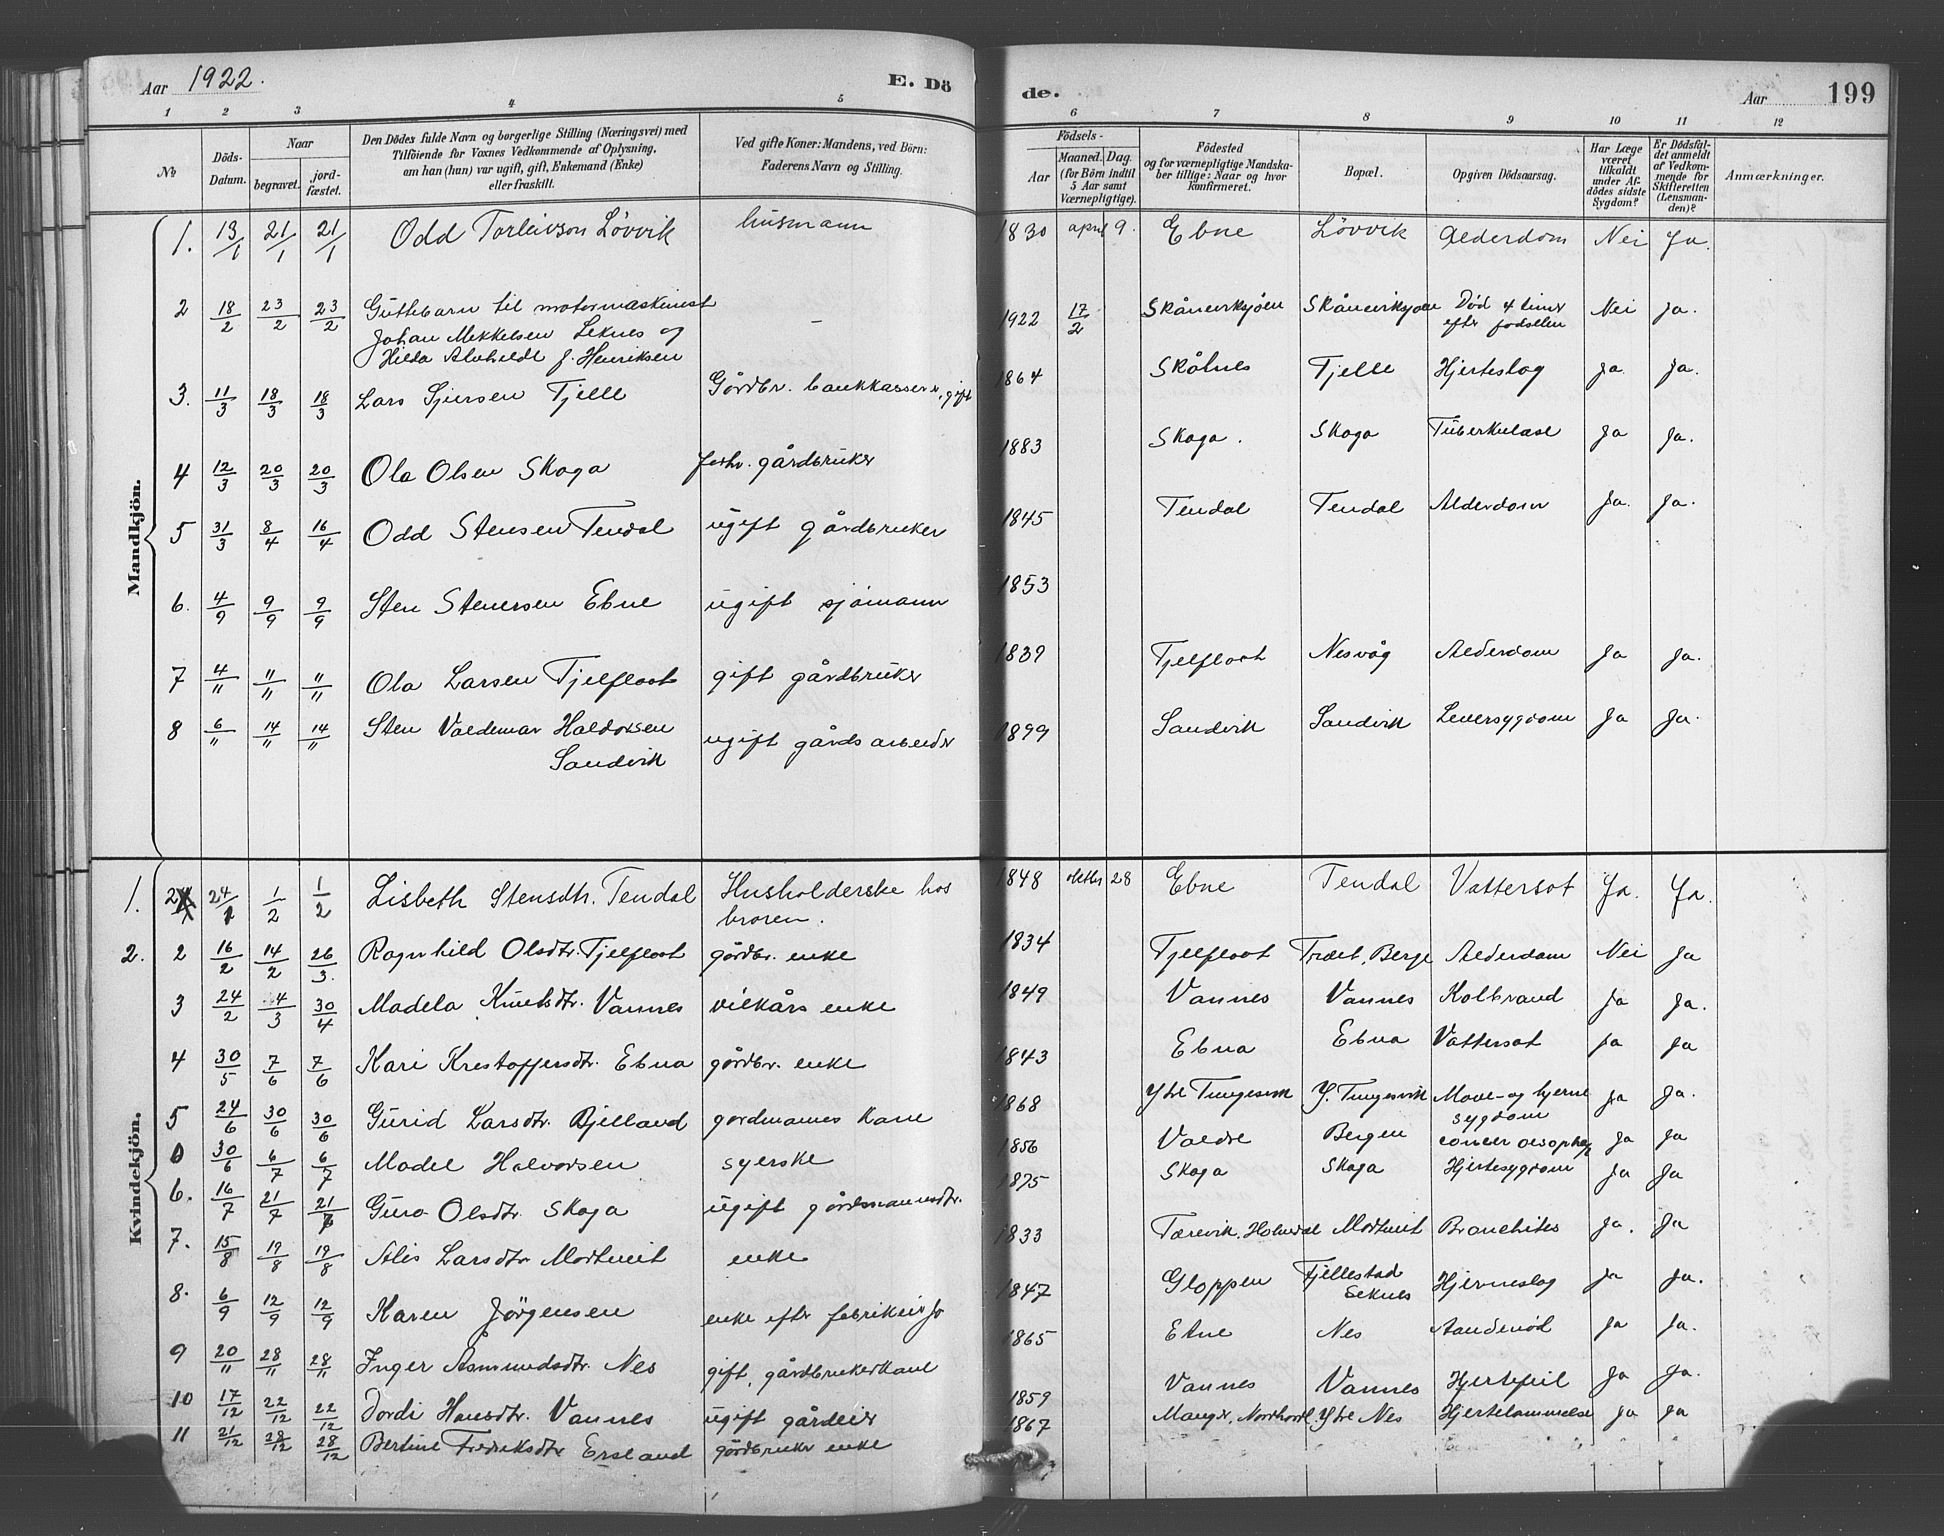 Aar 1922. E. Dö
de. Aar 199
1 2 3 4 5 6 7 8 9 10 11 12
№
Döds-Datum.
Naar
begravet.
jord-fæstet.
Den Dödes fulde Navn og borgerlige Stilling (Næringsvei) med
Tilföiende for Voxnes Vedkommende af Oplysning,
om han (hun) var ugift, gift, Enkemand (Enke)
eller fraskilt.
Ved gifte Koner: Mandens, ved Börn:
Faderens Navn og Stilling.
Födsels-
Aar
Maaned. Dag.
(for Börn indtil
5 Aar samt
Værnepligtige).
Födested
og for værnepligtige Mandska-
ber tillige: Naar og hvor
konfirmeret.
Bopæl.
Opgiven Dödsaarsag.
Har Læge
været
tilkaldt
under Af-
dödes sidste
Sygdom?
Er Dödsfal-
det anmeldt
af Vedkom-
mende for
Skifteretten
(Lensman-
den)?
Anmærkninger.
Mandkjön.
1. 13/1 21/1 21/1 Odd Torleivson Lövvik husmann 1830 april 9. Ebne Lövvik Alderdom Nei Ja.
2 18/2 23/2 23/2 Guttebarn til motormaskinist
Johan Mikkelsen Leknes og
Hilda Alvhilde f. Henriksen – 1922 17/2 Skånevikjöen Skånevikjöen Död 4 timer
eftr födselen Nei Ja.
3. 11/3 18/3 18/3 Lars Sjursen Tjelle Gårdbr. bankkasserer, gift 1864 Skålnes Tjelle Hjerteslag Ja Ja.
4 12/3 20/3 20/3 Ola Olsen Skaga forh. gårdbruker 1883 Skaga. Skaga Tuberkulase Ja Ja.
5 31/3 8/4 16/4 Odd Stensen Tendal ugift gårdbruker 1845 Tendal Tendal Alderdom Ja. Ja.
6. 4/9 9/9 9/9 Sten Stenersen Ebne ugift sjömann 1853
7 4/" "/" "/" Ola Larsen Tjelflaat gift gårdbruker 1839 Tjelflaat Nesvåg Alderdom Ja Ja.
8 6/" 14/" 14/" Sten Valdemar Haldorsen
Sandvik ugift gårdsarbeider 1899 Sandvik Sandvik Leversygdom Ja Ja.
Kvindekjön.
1. 24/1 1/2 1/2 Lisbeth Stensdtr. Tendal Husholderske hos
broren. 1848 oktbr 28 Ebne Tendal Vattersot Ja. Ja.
2. 2 16/2 14/2 26/3. Ragnhild Olsdtr. Tjelflaat gårdbr. enke 1834 Tjelflaat Træet, Berge Alderdom Nei Ja
3 24/2 4/3 30/4 Madela Knutsdtr. Vannes vilkårs enke 1849 Vannes Vannes Kolbrand Ja Ja.
4 30/5 7/6 7/6 Kari Krestoffersdtr. Ebna gårdbr. enke 1843 Ebna Ebna Vattersot Ja Ja
5 24/6 30/6 30/6 Gurid Larsdtr. Bjelland gardmannes kone 1868 Ytre Tungesvik Y. Tungesvik Mave- og hjerne
sygdom Ja Ja.
30/6 6/7 6/7 Madel Halvorsen syerske 1856 Valdre Bergen cancer oesophag Ja Ja
6. 16/7 21/7 21/7 Guro Olsdtr. Skaga ugift gårdmannsdtr. 1875 Skaga Skaga Hjertesygdom Ja Ja
7. 15/8 19/8 19/8 Alis Larsdtr Mortveit enke 1833 Tærevik, Holmedal Mortveit Bronchites Ja. Ja
8. 6/9 12/9 12/9 Karen Jörgensen enke eftr fabrikeier Jo 1847 Gloppen Fjellestad
Leknes Hjerneslag Ja Ja.
9 20/" 28/" 28/" Inger Asmundsdtr. Nes gift, gårdbrukerkone 1865 Etne Nes Aandenöd Ja Ja.
10 17/12 22/12 22/12 Dordi Hansdtr. Vannes ugift gårdeier 1859 Vannes Vannes Hjertefeil Ja Ja.
11 21/12 28/12 28/12 Bertine Fredriksdtr Ersland gårdbruker enke 1867 Manger, Nordhordl. Ytre Nes Hjertelammelse Ja Ja